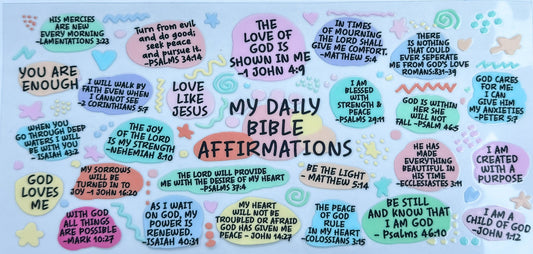 HIS MERCIES
ARE NEW
EVERY MORNING
-LAMENTATIONS 3:23
Turn from evil
and do good;
seek peace
and pursue it.
-PSALMS 34:14
THE
LOVE OF
GOD IS
SHOWN IN ME
-1 JOHN 4:9
IN TIMES
OF MOURNING
THE LORD SHALL
GIVE ME COMFORT.
-MATTHEW 5:4
THERE
IS NOTHING
THAT COULD
EVER SEPERATE
ME FROM GOD'S LOVE
ROMANS:8:31-39
YOU ARE
ENOUGH
I WILL WALK BY
FAITH EVEN WHEN
I CANNOT SEE
-2 CORINTHIANS 5:7
LOVE
LIKE
JESUS
MY DAILY
BIBLE
AFFIRMATIONS
I AM
BLESSED
WITH
STRENGTH &
PEACE
-PSALMS 29:11
GOD IS WITHIN
HER SHE
WILL NOT
FALL -PSALM 46:5
GOD CARES
FOR ME:
I CAN
GIVE HIM
MY ANXIETIES
-PETER 5:7
WHEN YOU
GO THROUGH DEEP
WATERS I WILL
BE WITH YOU
- ISAIAH 43:2
THE JOY
OF THE LORD
IS MY STRENGTH
-NEHEMIAH 8:10
HE HAS
MADE
EVERYTHING
BEAUTIFUL IN
HIS TIME
-ECCLESIASTES 3:11
I AM
CREATED
WITH A
PURPOSE
GOD
LOVES
ME
MY SORROWS
WILL BE
TURNED IN TO
JOY -1 JOHN 16:20
THE LORD WILL PROVIDE
ME WITH THE DESIRE OF MY HEART
-PSALMS 37:4
BE THE LIGHT
- MATTHEW 5:14
WITH GOD
ALL THINGS
ARE POSSIBLE
-MARK 10:27
AS I WAIT
ON GOD, MY
POWER IS
RENEWED.
-ISAIAH 40:31
MY HEART
WILL NOT BE
TROUBLED OR AFRAID
GOD HAS GIVEN ME
PEACE - JOHN 14:27
THE PEACE
OF GOD
RULE
IN MY HEART
-COLOSSIANS 3:15
BE STILL
AND KNOW THAT
I AM GOD
- Psalms 46:10
I AM A
CHILD OF GOD
-JOHN 1:12